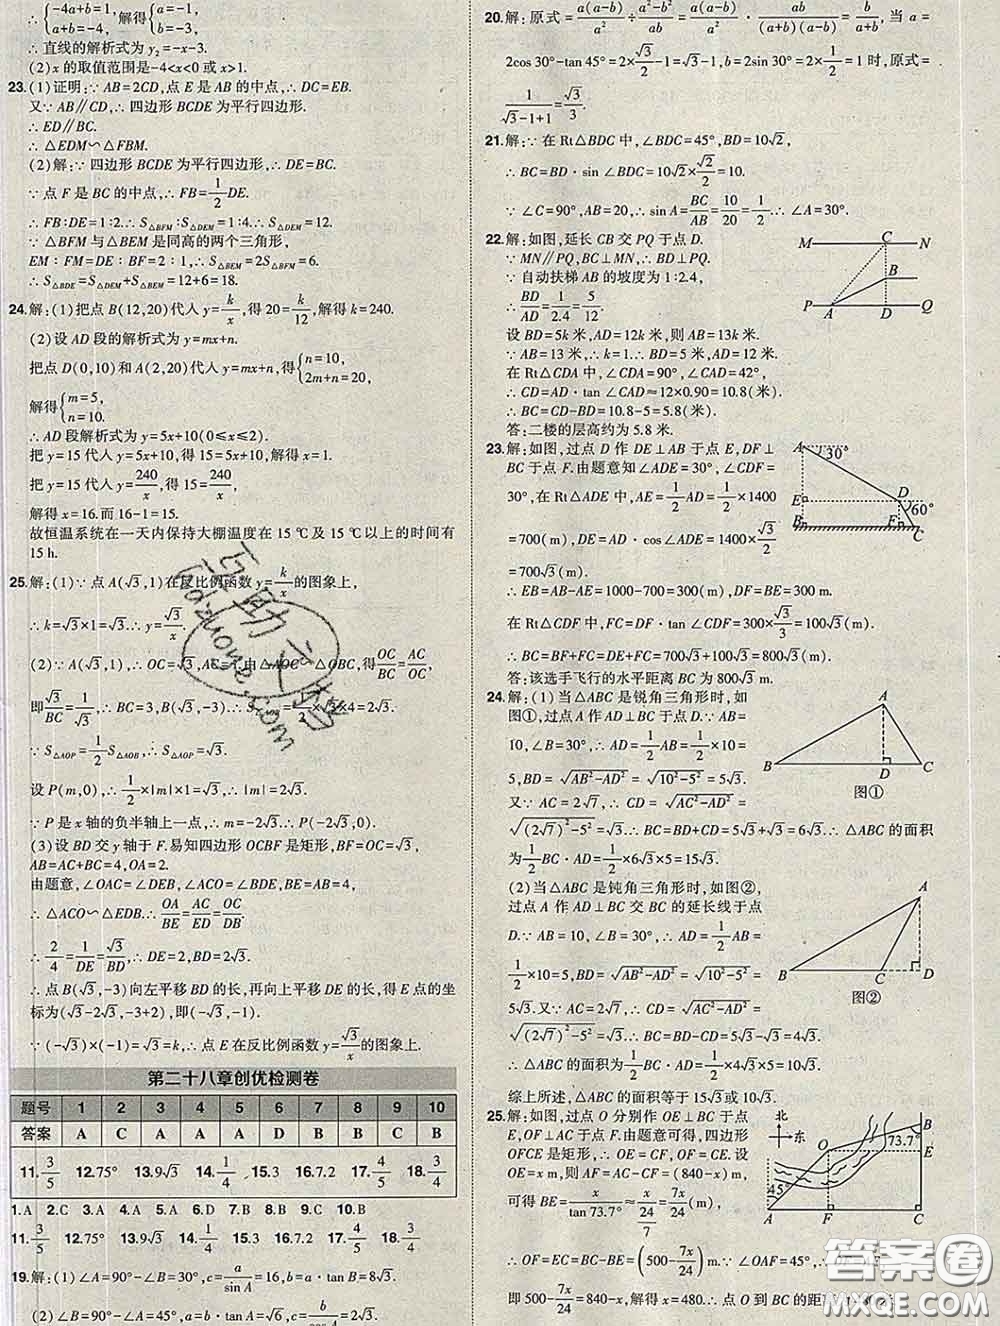 ∴{-4a+b=1,a+b=-4, 解得{a=-1,b=-3,
∴直线的解析式为 y₂=-x-3.
(2)x 的取值范围是-4<x<0 或 x>1.
23.(1)证明:∵AB=2CD,点 E 是 AB 的中点,∴DC=EB.
又∵AB∥CD,∴四边形 BCDE 为平行四边形.
∴ED∥BC.
∴△EDM∽△FBM.
(2)解:∵四边形 BCDE 为平行四边形,∴DE=BC.
∵点 F 是 BC 的中点,∴FB=1/2DE.
∴FB∶DE=1∶2.∴S△BFM∶S△DEM=1∶4.∴S△DEM=12.
∵△BFM 与△BEM 是同高的两个三角形,
EM∶FM=DE∶BF=2∶1,∴S△BEM=2S△BFM=6.
∴S△BDE=S△DEM+S△BEM=12+6=18.
24.解:(1)把点 B(12,20)代入 y=k/x,得 20=k/12,解得 k=240.
(2)设 AD 段的解析式为 y=mx+n.
把点 D(0,10)和 A(2,20)代入 y=mx+n,得{n=10,2m+n=20,
解得{m=5,n=10.
∴AD 段解析式为 y=5x+10(0≤x≤2).
把 y=15 代入 y=5x+10,得 15=5x+10,解得 x=1.
把 y=15 代入 y=240/x,得 15=240/x,
解得 x=16.而 16-1=15.
故恒温系统在一天内保持大棚温度在 15 ℃及 15 ℃以上的时间有
15 h.
25.解:(1)∵点 A(√3,1)在反比例函数 y=k/x 的图象上,
∴k=√3×1=√3.∴y=√3/x.
(2)∵A(√3,1),∴OC=√3,AC=1.由△AOC∽△OBC,得OC/BC=AC/OC,
即√3/BC=1/√3.∴BC=3,B(√3,-3).∴S△AOB=1/2×√3×4=2√3.
∵S△AOP=1/2S△AOB,∴S△AOP=√3.
设 P(m,0),∴1/2×|m|×1=√3,∴|m|=2√3.
∵P 是 x 轴的负半轴上一点,∴m=-2√3.∴P(-2√3,0).
(3)设 BD 交 y 轴于 F.易知四边形 OCBF 是矩形,BF=OC=√3,
AB=AC+BC=4,OA=2.
由题意,∠OAC=∠DEB,∠ACO=∠BDE,BE=BA=4,
∴△ACO∽△EDB.∴OA/BE=AC/ED=OC/DB.
∴2/4=1/DE=√3/BD,∴DE=2,BD=2√3.
∴点 B(√3,-3)向左平移 BD 的长,再向上平移 DE 的长,得 E 点的坐
标为(√3-2√3,-3+2),即(-√3,-1).
∵(-√3)×(-1)=√3=k,∴点 E 在反比例函数 y=√3/x 的图象上.
第二十八章创优检测卷
题号 1 2 3 4 5 6 7 8 9 10
答案 A C A A A D B B C B
11.3/5 12.75° 13.9√3 14.1/4 15.3 16.7.2 17.4/5 18.3/4
1.A 2.C 3.A 4.A 5.A 6.D 7.B 8.B 9.C 10.B
11.3/5 12.75° 13.9√3 14.1/4 15.3 16.7.2 17.4/5 18.3/4
19.解:(1)∠A=90°-∠B=30°,c=a/sin A=16,b=a·tan B=8√3.
(2)∠B=90°-∠A=45°,a=b·tan A=√6,
20.解:原式=a(a-b)/a²÷a²-b²/a=a(a-b)/a²·a/(a+b)(a-b)=1/a+b,当 a=
2cos 30°-tan 45°=2×√3/2-1=√3-1,b=2sin 30°=2×1/2=1 时,原式=
1/√3-1+1=√3/3.
21.解:∵在 Rt△BDC 中,∠BDC=45°,BD=10√2,
∴BC=BD·sin ∠BDC=10√2×√2/2=10.
∵∠C=90°,AB=20,∴sin A=BC/AB=10/20=1/2,∴∠A=30°.
22.解:如图,延长 CB 交 PQ 于点 D.
∵MN∥PQ,BC⊥MN,∴BD⊥PQ.
∵自动扶梯 AB 的坡度为 1∶2.4,
∴BD/AD=1/2.4=5/12.
设 BD=5k 米,AD=12k 米,则 AB=13k 米.
∵AB=13 米,∴k=1.∴BD=5 米,AD=12 米.
在 Rt△CDA 中,∠CDA=90°,∠CAD=42°,
∴CD=AD·tan ∠CAD≈12×0.90=10.8(米).
∴BC=CD-BD=10.8-5=5.8(米).
答:二楼的层高约为 5.8 米.
M C N
B
P A D Q
23.解:如图,过点 D 作 DE⊥AB 于点 E,DF⊥
BC 于点 F.由题意知∠ADE=30°,∠CDF=
30°,在 Rt△ADE 中,AE=1/2AD=1/2×1400
=700(m),DE=AD·cos ∠ADE=1400×√3/2
=700√3(m).
∴EB=AB-AE=1000-700=300(m),DF=BE=300 m.
在 Rt△CDF 中,FC=DF·tan ∠CDF=300×√3/3=100√3(m).
∴BC=BF+FC=DE+FC=700√3+100√3=800√3(m).
答:该选手飞行的水平距离 BC 为 800√3 m.
A 30°
E D
60°
B F C
24.解:(1)当△ABC 是锐角三角形时,如
图①,过点 A 作 AD⊥BC 于点 D.∵AB=
10,∠B=30°,∴AD=1/2AB=1/2×10=
5,BD=√AB²-AD²=√10²-5²=5√3.
又∵AC=2√7,∴CD=√AC²-AD²=
√(2√7)²-5²=√3.∴BC=BD+CD=5√3+√3=6√3.∴△ABC 的面积
为1/2BC·AD=1/2×6√3×5=15√3.
A
B D C
图①
(2)当△ABC 是钝角三角形时,如图②,
过点 A 作 AD⊥BC 交 BC 的延长线于点
D.∵AB=10,∠B=30°,∴AD=1/2AB=
1/2×10=5,BD=√AB²-AD²=√10²-5²=
5√3.又∵AC=2√7,∴CD=√AC²-AD²=
√(2√7)²-5²=√3.∴BC=BD-CD=5√3-√3=4√3.
∴△ABC 的面积为1/2BC·AD=1/2×4√3×5=10√3.
综上所述,△ABC 的面积等于 15√3或 10√3.
A
B C D
图②
25.解:如图,过点 O 分别作 OE⊥BC 于点
E,OF⊥AC 于点 F.由题意可得,四边形
OFCE 是矩形,∴OE=CF,OF=CE.设
OE=x m,则 AF=AC-CF=(840-x)m.
可得 BE=x/tan 73.7°≈x/24/7=7x/24(m),
∴OF=EC=BC-BE=(500-7x/24)m.∵∠OAF=45°,
即 500-7x/24=840-x,解得 x=480.∴点 O 到 BC 的距
北 东
B
73.7°
O E
45°
A F C
答案卷
MXQE.COM